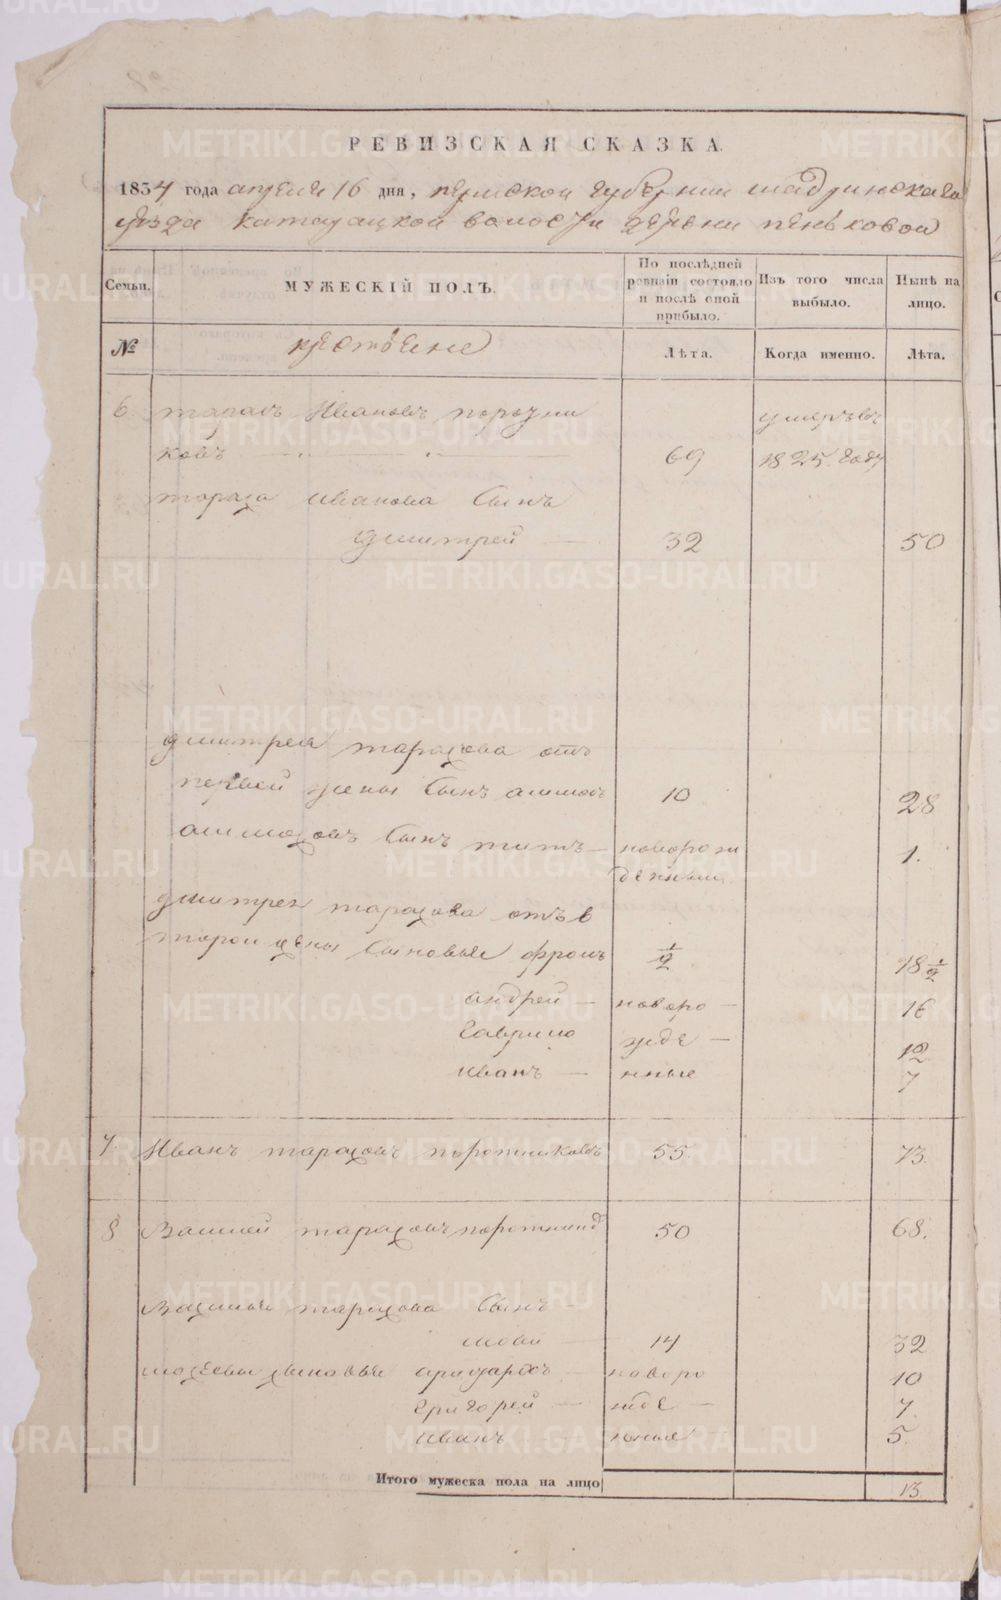 РЕВИЗСКАЯ СКАЗКА.
1834 года апреля 16 дня, пермской губернии шадринскаго
уѣзда катайской волости деревни пеньковой
Семьи. МУЖЕСКІЙ ПОЛЪ. По послѣдней ревизіи состояло и послѣ оной прибыло. Изъ того числа выбыло. Нынѣ на лицо.
№ крестьяне Лѣта. Когда именно. Лѣта.
6 тарасъ Ивановъ поротни умеръ въ
ковъ 69 1825 году
тараса иванова сынъ
дмитрей 32 50
дмитрея тарасова отъ
первой жены сынъ 10 28
сынъ титъ новорож 1.
денный
дмитрея тарасова отъ в
торой жены сыновья фролъ ½ 18½
андрей новоро 16
гаврило жде 12
иванъ нные 7
7 Иванъ тарасовъ поротниковъ 55. 73.
8 Василей тарасовъ 50 68.
Василья тарасова сынъ
14 32
сыновья новоро 10
григорей жде 7.
иванъ нные 5
Итого мужеска пола на лицо 13.
METRIKI.GASO-URAL.RU